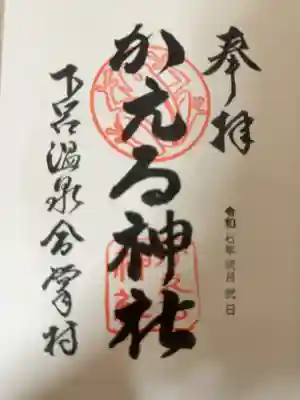 奉拝
令和七年弐月弐日
かえる神社
下呂温泉合掌村